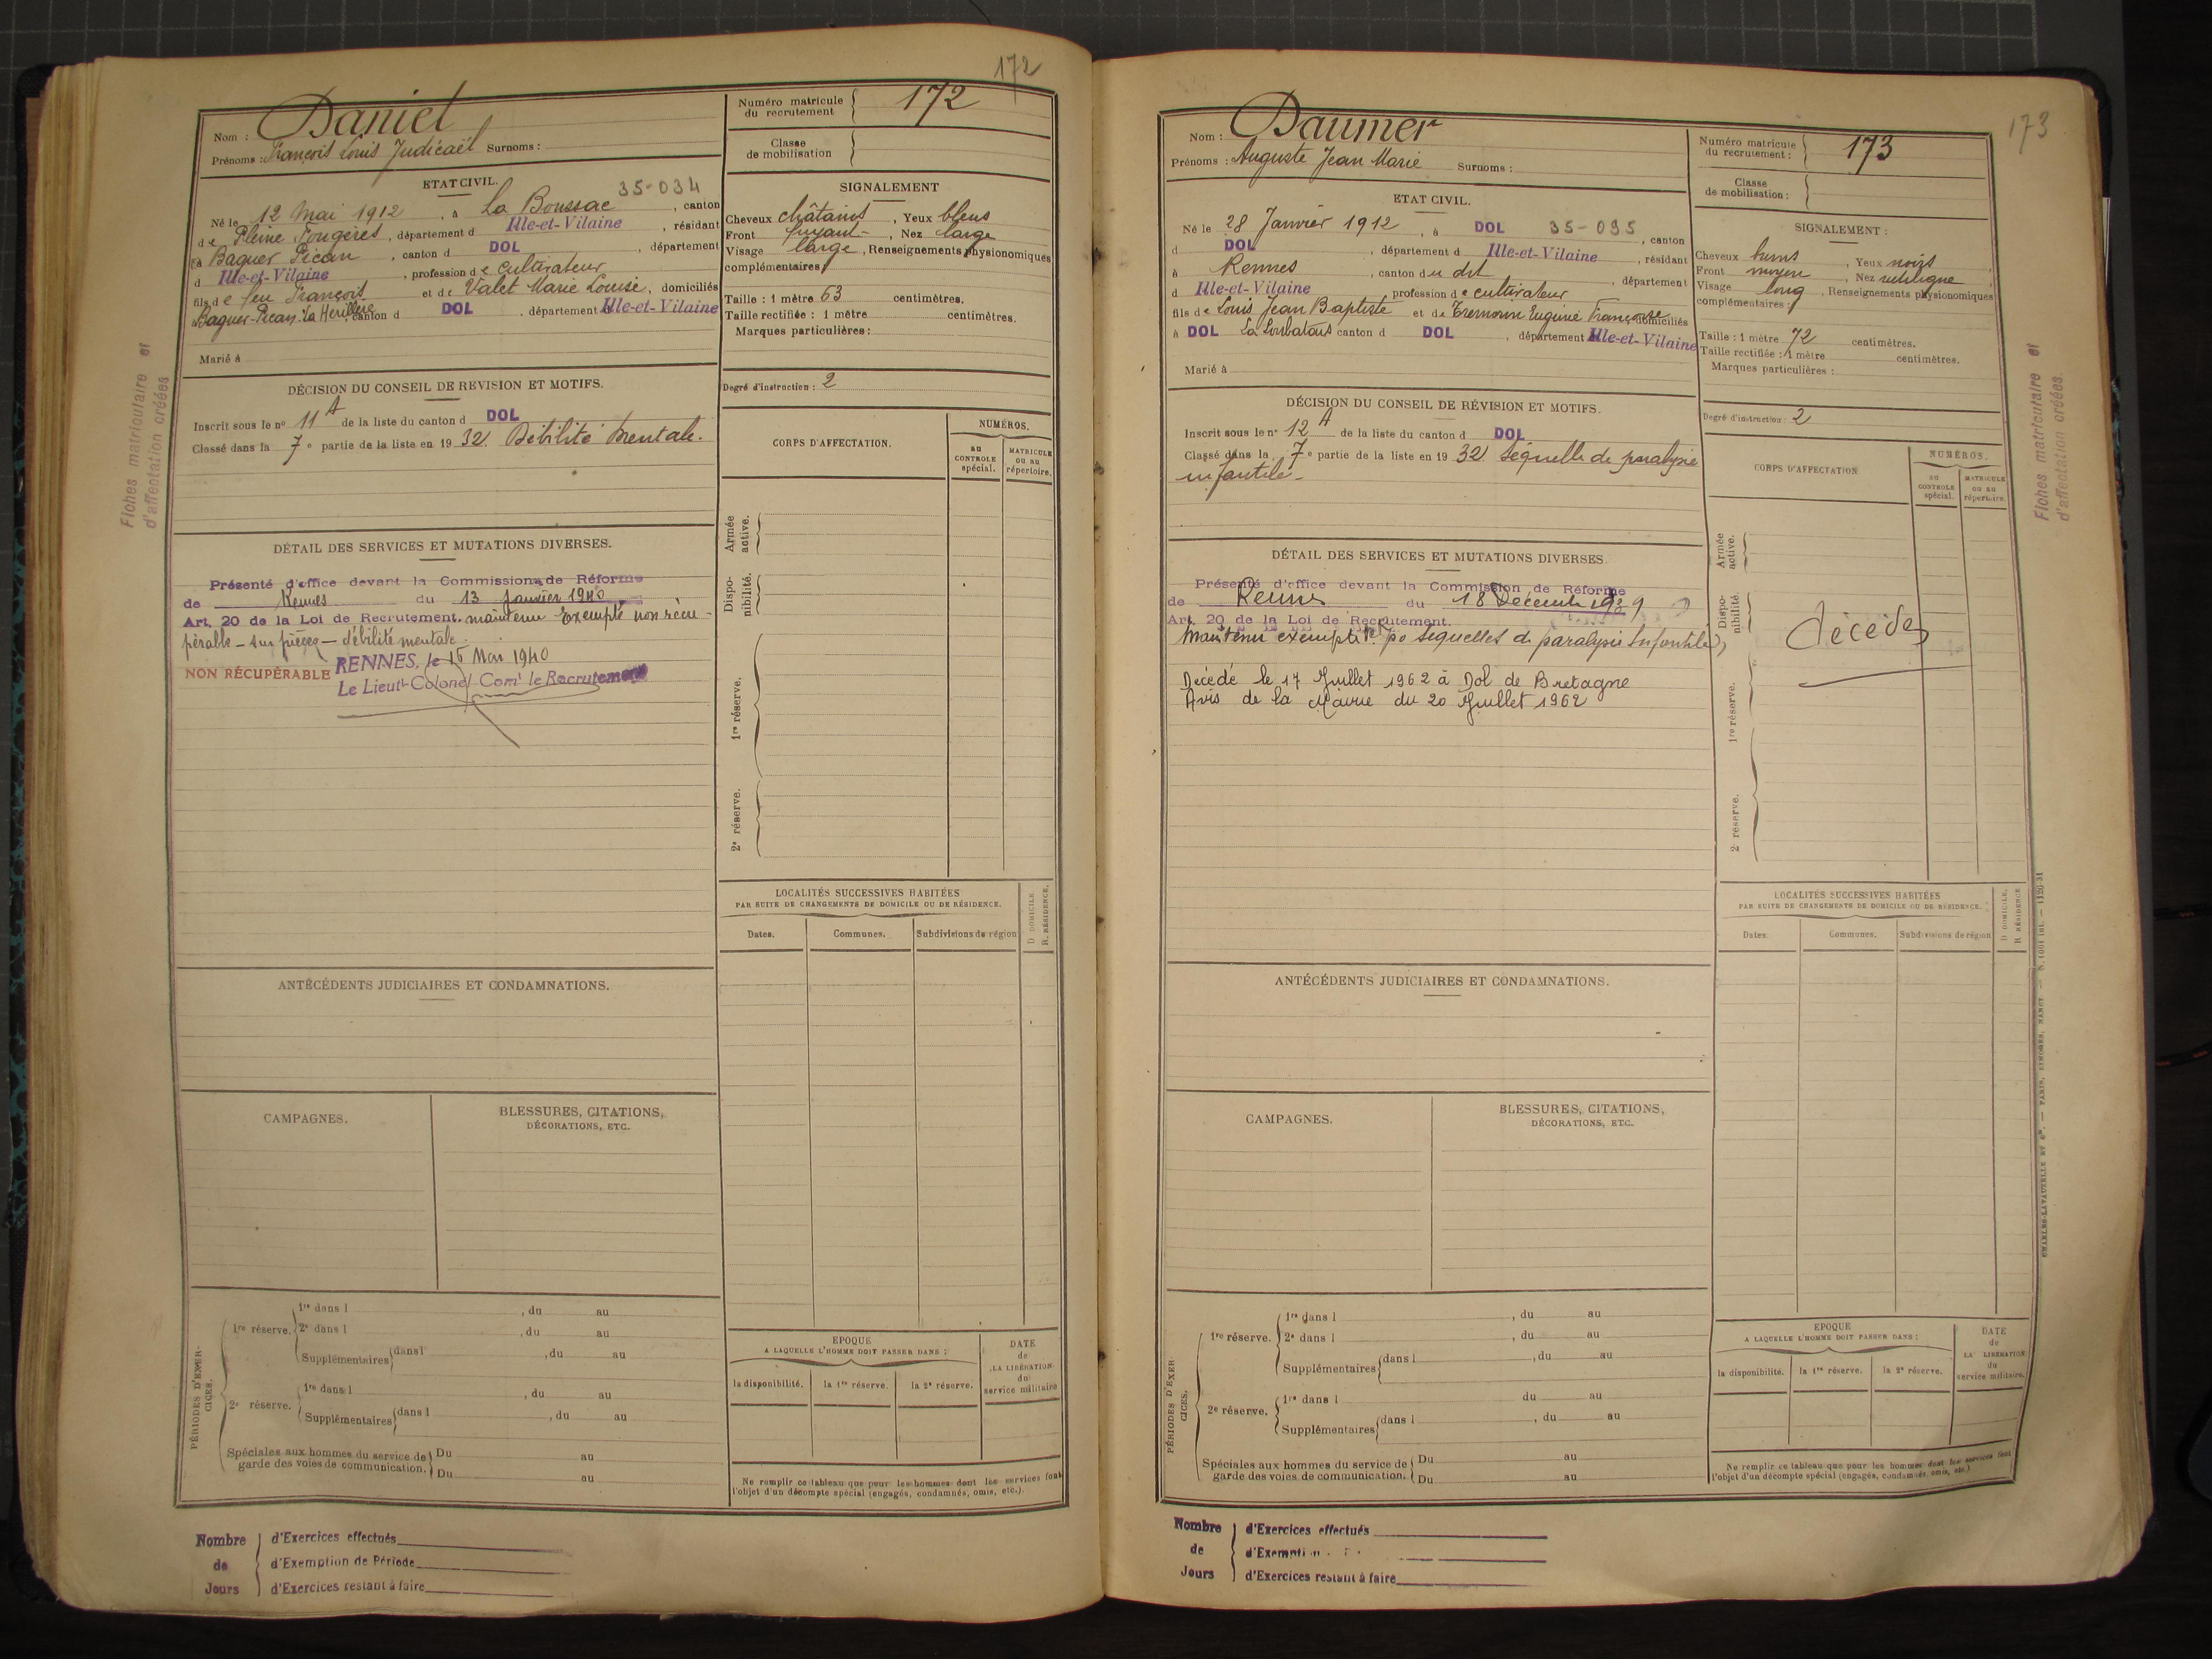 172
Nom : Daniel
Prénoms : François Louis Judicaël Surnoms :
Numéro matricule du recrutement 172
Classe de mobilisation
ETAT CIVIL.
35-034
Né le 12 Mai 1912, à La Boussac, canton
de Pleine Fougères, département d Ille-et-Vilaine, résidant
à Baguer Pican, canton d DOL, département
d Ille-et-Vilaine, profession de cultivateur
fils de feu François et de Valet Marie Louise, domiciliés
à Baguer-Pican "La Herillère", canton d DOL, département Ille-et-Vilaine
Marié à
SIGNALEMENT
Cheveux châtains, Yeux bleus
Front fuyant, Nez large
Visage large, Renseignements physionomiques
complémentaires
Taille : 1 mètre 63 centimètres.
Taille rectifiée : 1 mètre centimètres.
Marques particulières :
Degré d'instruction : 2
DÉCISION DU CONSEIL DE REVISION ET MOTIFS.
Inscrit sous le nº 11 A de la liste du canton d DOL
Classé dans la 7e partie de la liste en 1932. Débilité mentale.
DÉTAIL DES SERVICES ET MUTATIONS DIVERSES.
Présenté d'office devant la Commission de Réforme
de Rennes du 13 Janvier 1940
Art. 20 de la Loi de Recrutement. maintenu Exempté non récu-
pérable - sur pièces - débilité mentale.
NON RÉCUPÉRABLE RENNES, le 15 Mars 1940
Le Lieut-Colonel Comt le Recrutement
Fiches matriculaire et
d'affectation créées
CORPS D'AFFECTATION.
NUMÉROS.
au CONTROLE spécial.
MATRICULE ou au répertoire.
Armée active.
Disponibilité.
1re réserve.
2e réserve.
LOCALITÉS SUCCESSIVES HABITÉES
PAR SUITE DE CHANGEMENTS DE DOMICILE OU DE RÉSIDENCE.
D DOMICILE.
R. RÉSIDENCE.
Dates.
Communes.
Subdivisions de région
ANTÉCÉDENTS JUDICIAIRES ET CONDAMNATIONS.
CAMPAGNES.
BLESSURES, CITATIONS,
DÉCORATIONS, ETC.
PÉRIODES D'EXERCICES.
1re réserve.
1re dans l , du au
2e dans l , du au
Supplémentaires dans l , du au
2e réserve.
1re dans l , du au
Supplémentaires dans l , du au
Spéciales aux hommes du service de
garde des voies de communication.
Du au
Du au
EPOQUE
A LAQUELLE L'HOMME DOIT PASSER DANS :
la disponibilité.
la 1re réserve.
la 2e réserve.
DATE
de
LA LIBÉRATION
du
service militaire
Ne remplir ce tableau que pour les hommes dont les services font
l'objet d'un décompte spécial (engagés, condamnés, omis, etc.).
Nombre de Jours
d'Exercices effectués
d'Exemption de Période
d'Exercices restant à faire
173
Nom : Daumer
Prénoms : Auguste Jean Marie Surnoms :
Numéro matricule du recrutement : 173
Classe de mobilisation :
ETAT CIVIL.
Né le 28 Janvier 1912, à DOL 35-095, canton
d DOL, département d Ille-et-Vilaine, résidant
à Rennes, canton du dit, département
d Ille-et-Vilaine, profession de cultivateur
fils de Louis Jean Baptiste et de Tremorin Eugénie Françoise domiciliés
à DOL canton d DOL, département Ille-et-Vilaine
Marié à
SIGNALEMENT :
Cheveux bruns, Yeux noirs
Front moyen, Nez rectiligne
Visage long, Renseignements physionomiques
complémentaires :
Taille : 1 mètre 72 centimètres.
Taille rectifiée : 1 mètre centimètres.
Marques particulières :
Degré d'instruction : 2
DÉCISION DU CONSEIL DE RÉVISION ET MOTIFS.
Inscrit sous le nº 12 A de la liste du canton d DOL
Classé dans la 7e partie de la liste en 1932 séquelle de paralysie
infantile -
DÉTAIL DES SERVICES ET MUTATIONS DIVERSES.
Présenté d'office devant la Commission de Réforme
de Rennes du 18 Décembre 1939
Art. 20 de la Loi de Recrutement.
Maintenu exempté po séquelles de paralysie Infantile
Décédé le 17 Juillet 1962 à Dol de Bretagne
Avis de la Mairie du 20 Juillet 1962
Fiches matriculaire et
d'affectation créées.
CORPS D'AFFECTATION
NUMÉROS.
au CONTROLE spécial.
MATRICULE ou au répertoire.
Armée active.
Disponibilité.
1re réserve.
2e réserve.
décédé
LOCALITÉS SUCCESSIVES HABITÉES
PAR SUITE DE CHANGEMENTS DE DOMICILE OU DE RÉSIDENCE.
D DOMICILE
R RÉSIDENCE
Dates.
Communes.
Subdivisions de région
ANTÉCÉDENTS JUDICIAIRES ET CONDAMNATIONS.
CAMPAGNES.
BLESSURES, CITATIONS,
DÉCORATIONS, ETC.
PÉRIODES D'EXERCICES.
1re réserve.
1re dans l , du au
2e dans l , du au
Supplémentaires dans l , du au
2e réserve.
1re dans l du au
Supplémentaires dans l , du au
Spéciales aux hommes du service de
garde des voies de communication.
Du au
Du au
EPOQUE
A LAQUELLE L'HOMME DOIT PASSER DANS :
la disponibilité.
la 1re réserve.
la 2e réserve.
DATE
de
LA LIBÉRATION
du
service militaire.
Ne remplir ce tableau que pour les hommes dont les services font
l'objet d'un décompte spécial (engagés, condamnés, omis, etc.)
CHARLES-LAVAUZELLE ET Cie. — PARIS, LIMOGES, NANCY
Nombre de Jours
d'Exercices effectués
d'Exempti
d'Exercices restant à faire